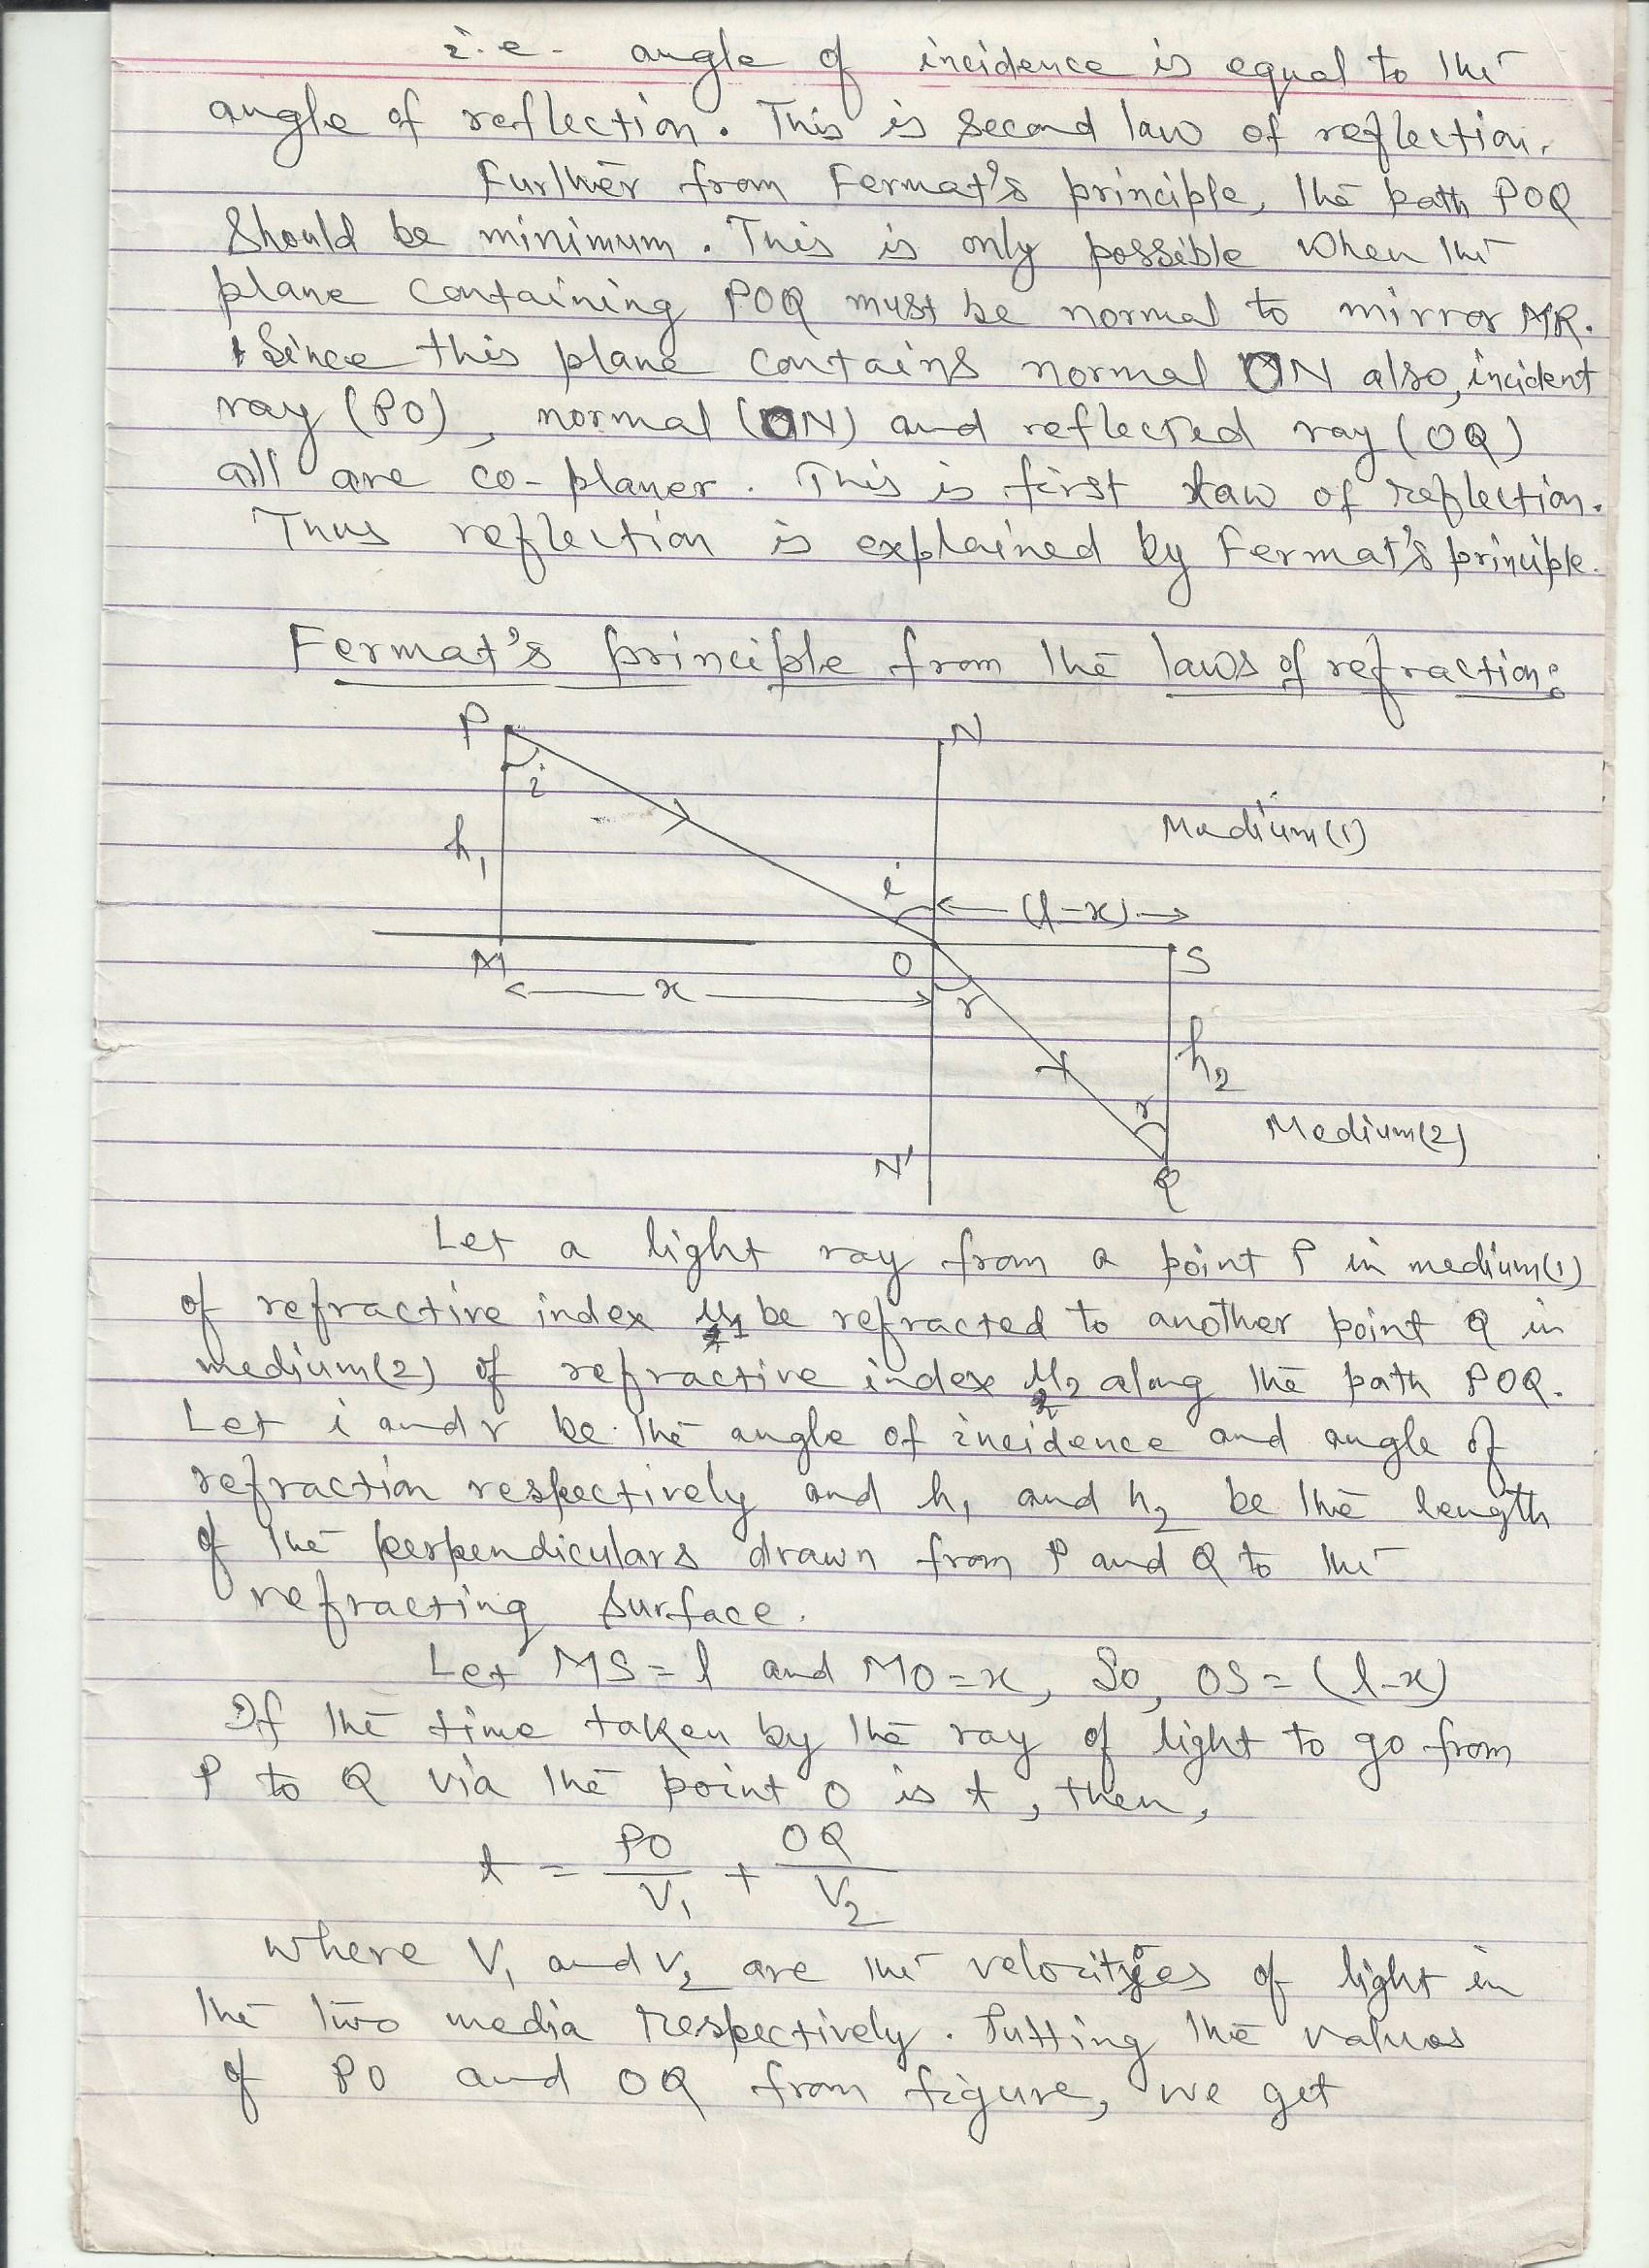 i.e. angle of incidence is equal to the
angle of reflection. This is second law of reflection.
Further from Fermat's principle, the path POQ
should be minimum. This is only possible when the
plane containing POQ must be normal to mirror MR.
Since this plane contains normal ON also, incident
ray (PO), normal (ON) and reflected ray (OQ)
all are co-planer. This is first law of reflection.
Thus reflection is explained by Fermat's principle.
Fermat's principle from the laws of refraction:
P
N
i
Medium(1)
h₁
i
(l-x)
M
O
S
x
r
h₂
r
Medium(2)
N'
Q
Let a light ray from a point P in medium(1)
of refractive index μ₁ be refracted to another point Q in
medium(2) of refractive index μ₂ along the path POQ.
Let i and r be the angle of incidence and angle of
refraction respectively and h₁ and h₂ be the length
of the perpendiculars drawn from P and Q to the
refracting surface.
Let MS = l and MO = x, So, OS = (l-x)
If the time taken by the ray of light to go from
P to Q via the point O is t, then,
t = PO/V₁ + OQ/V₂
where V₁ and V₂ are the velocities of light in
the two media respectively. Putting the values
of PO and OQ from figure, we get